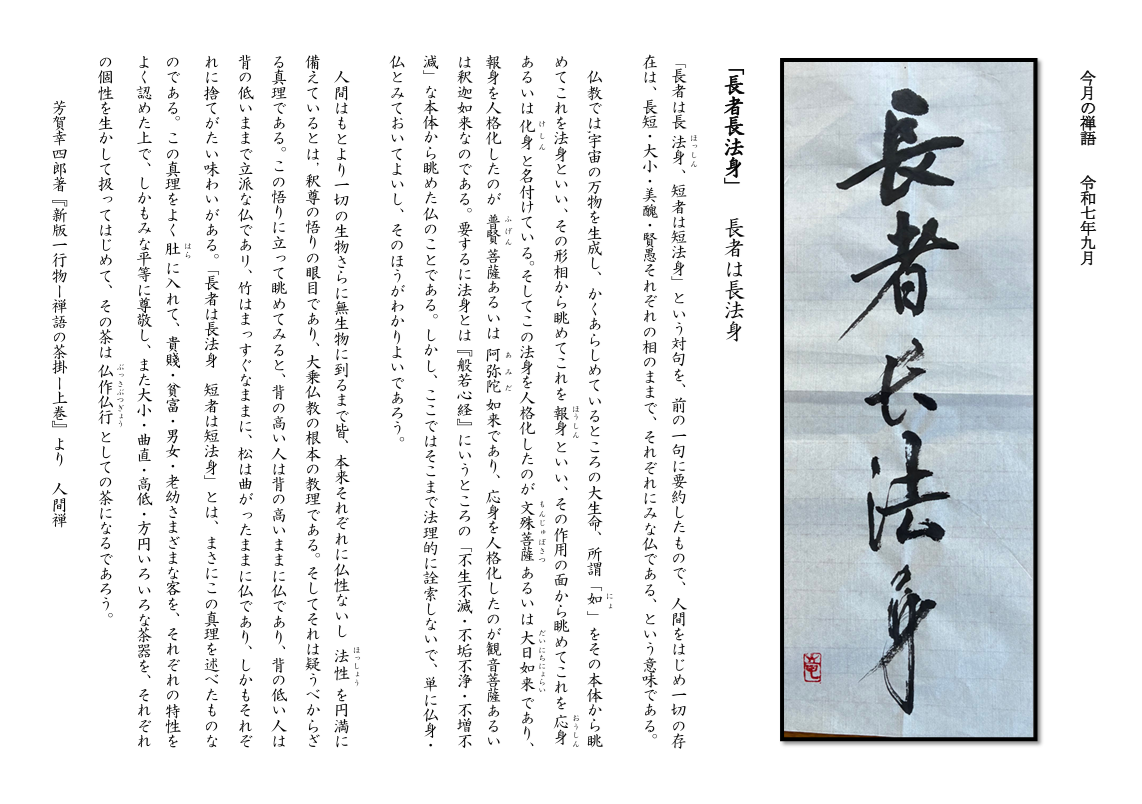 今月の禅語　令和七年九月
長者長法身
「長者長法身」　長者は長法身
「長者は長法身、短者は短法身」という対句を、前の一句に要約したもので、人間をはじめ一切の存
在は、長短・大小・美醜・賢愚それぞれの相のままで、それぞれにみな仏である、という意味である。
仏教では宇宙の万物を生成し、かくあらしめているところの大生命、所謂「如」をその本体から眺
めてこれを法身といい、その形相から眺めてこれを報身といい、その作用の面から眺めてこれを応身
あるいは化身と名付けている。そしてこの法身を人格化したのが文殊菩薩あるいは大日如来であり、
報身を人格化したのが普賢菩薩あるいは阿弥陀如来であり、応身を人格化したのが観音菩薩あるい
は釈迦如来なのである。要するに法身とは『般若心経』にいうところの「不生不滅・不垢不浄・不増不
減」な本体から眺めた仏のことである。しかし、ここではそこまで法理的に詮索しないで、単に仏身・
仏とみておいてよいし、そのほうがわかりよいであろう。
人間はもとより一切の生物さらに無生物に到るまで皆、本来それぞれに仏性ないし法性を円満に
備えているとは、釈尊の悟りの眼目であり、大乗仏教の根本の教理である。そしてそれは疑うべからざ
る真理である。この悟りに立って眺めてみると、背の高い人は背の高いままに仏であり、背の低い人は
背の低いままで立派な仏であり、竹はまっすぐなままに、松は曲がったままに仏であり、しかもそれぞ
れに捨てがたい味わいがある。「長者は長法身　短者は短法身」とは、まさにこの真理を述べたものな
のである。この真理をよく肚に入れて、貴賤・貧富・男女・老幼さまざまな客を、それぞれの特性を
よく認めた上で、しかもみな平等に尊敬し、また大小・曲直・高低・方円いろいろな茶器を、それぞれ
の個性を生かして扱ってはじめて、その茶は仏作仏行としての茶になるであろう。
芳賀幸四郎著『新版一行物―禅語の茶掛―上巻』より　人間禅